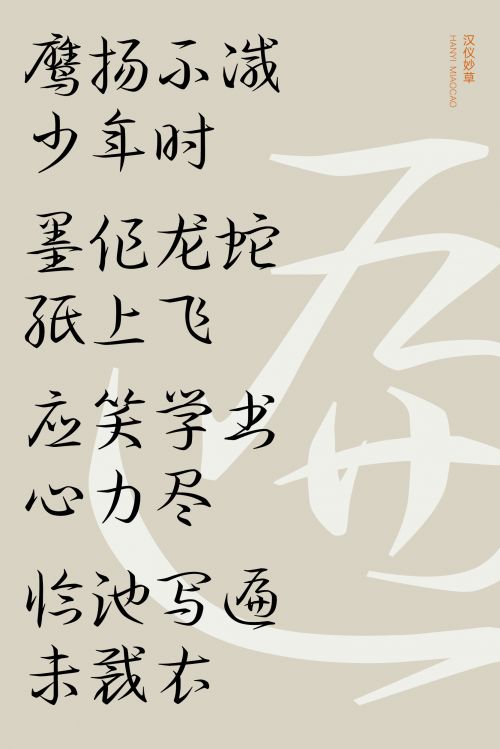 鹰扬不减
少年时
墨作龙蛇
纸上飞
应笑学书
心力尽
临池写遍
未裁衣
汉仪妙草
HANYI MIAOCAO
遍